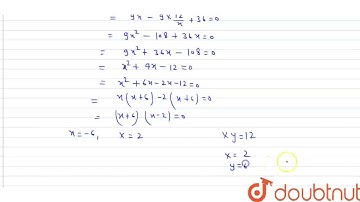 = 9x - 9x 12/x + 36 = 0
= 9x² - 108 + 36x = 0
= 9x² + 36x - 108 = 0
= x² + 4x - 12 = 0
= x² + 6x - 2x - 12 = 0
= x(x+6) - 2(x+6) = 0
= (x+6) (x-2) = 0
x = -6, x = 2 xy = 12
x = 2
y = 6
doubtnut